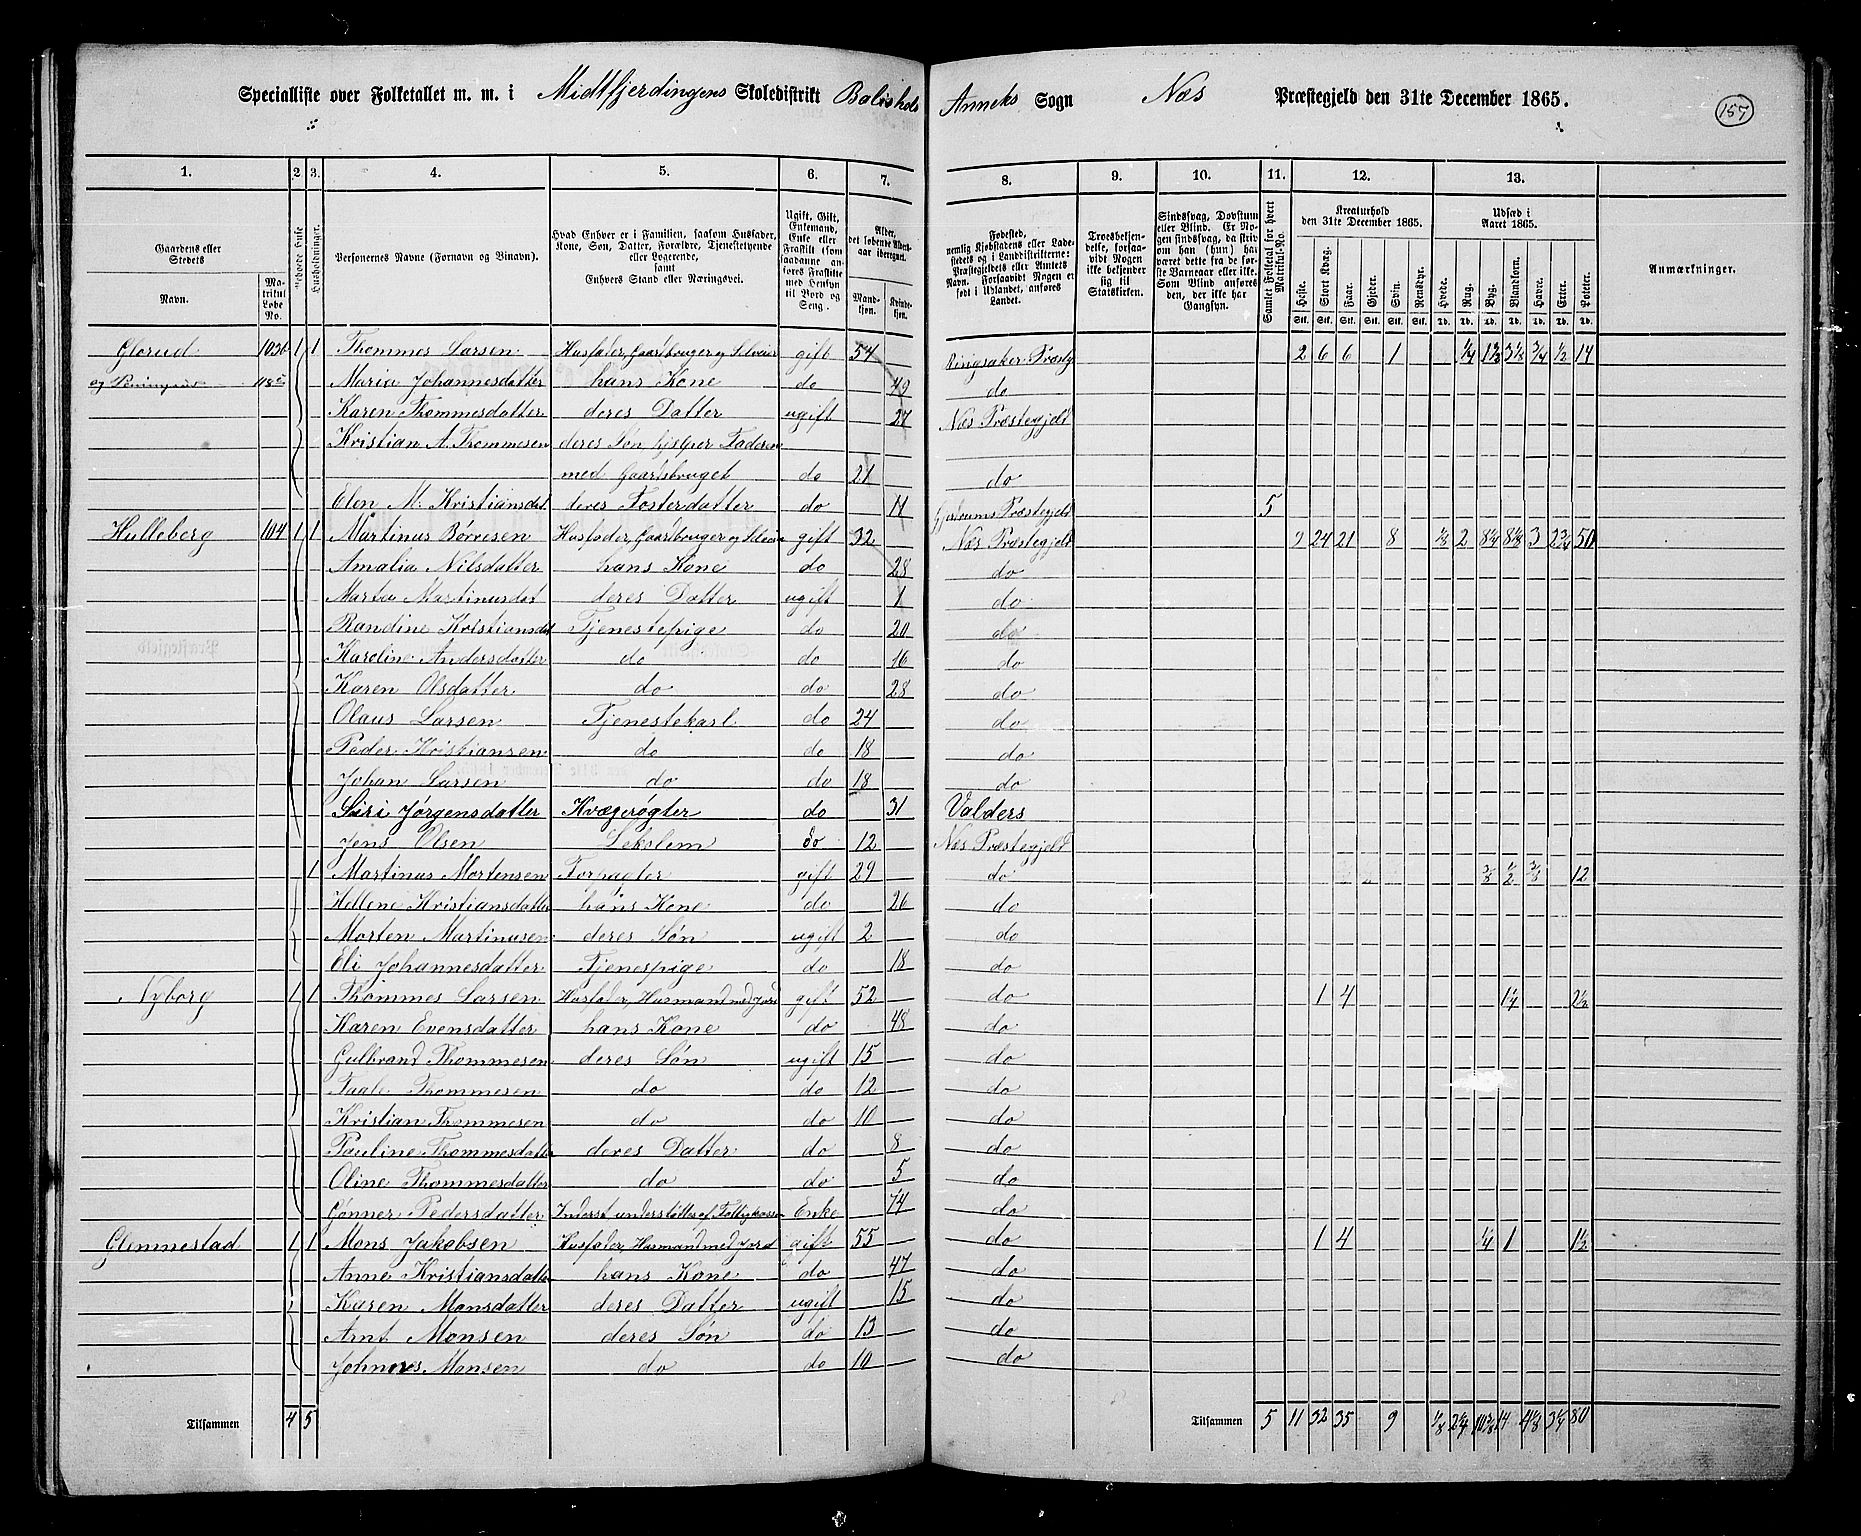 Specialliste over Folketallet m. m. i Midtfjerdingens Skoledistrikt Balishols Anneks Sogn Næs Præstegjeld den 31te December 1865.
157
1. 2 3. 4. 5. 6. 7. 8. 9. 10. 11. 12. 13.
Gaardens eller Stedets Navn. Matrikul Løbe No. Beboede Huse Husholdninger. Personernes Navne (Fornavn og Binavn). Hvad Enhver er i Familien, saasom Husfader, Kone, Søn, Datter, Forældre, Tjenestetyende eller Logerende, samt Enhvers Stand eller Næringsvei. Ugift, Gift, Enkemand, Enke eller Fraskilt (som saadanne anføres Fraskilte med Hensyn til Bord og Seng. Alder, det løbende Alders-aar iberegnet. Mandkjøn. Kvindekjøn.
Fødested, nemlig Kjøbstadens eller Ladestedets og i Landdistrikterne: Præstegjeldets eller Amtets Navn. Forsaavidt Nogen er født i Udlandet, anføres Landet. Troesbekjendelse, forsaavidt Nogen ikke bekjender sig til Statskirken. Sindssvag, Døvstum eller Blind. Er Nogen sindssvag, da skriv om han (hun) har været dette fra de første Barneaar eller ikke. Som Blind anføres den, der ikke har Gangsyn. Samlet Folketal for hvert Matrikul-No. Kreaturhold den 31te December 1865. Udsæd i Aaret 1865. Anmærkninger.
Heste. Stort Kvæg. Faar. Gjeder. Svin. Rensdyr. Hvede. Rug. Byg. Blandkorn. Havre. Erter. Poteter.
Stk. Stk. Stk. Stk. Stk. Stk. Td. Td. Td. Td. Td. Td. Td.
Glorud 103b 1 1 Thommes Larsen Husfader, Gaardbruger og Selveier gift 54 Ringsaker Præstg 2 6 6 1 1/4 3 1/8 3/4 1/2 14
og 118c Maria Johannesdatter hans Kone do 49 do
Karen Thommesdatter deres Datter ugift 27 Næs Præstegjeld
Kristian A. Thommesen deres Søn hjelper Faderen
med Gaardsbruget do 21 do
Elen M. Kristiansdat deres Fosterdatter do 11 Præstegjeld 5
Hulleberg 104 1 1 Martinus Børresen Husfader, Gaardbruger og Selveier gift 32 Næs Præstegjeld 9 24 21 8 1/8 2 8 1/4 8 1/8 3 2 3/4 50
Amalia Nilsdatter hans Kone do 28 do
Marta Martinusdat deres Datter ugift 1 do
Randine Kristiansdat Tjenestepige do 20 do
Karoline Andersdatter do do 16 do
Karen Olsdatter do do 28 do
Olaus Larsen Tjenestekarl do 24 do
Peder Kristiansen do do 18 do
Johan Larsen do do 18 do
Siri Jørgensdatter Kvægrøgter do 31 Valders
Jens Olsen Lekslem do 12 Næs Præstegjeld
1 Martinus Mortensen Forpagter gift 29 do 12
Hellene Kristiansdatter hans Kone do 26 do
Morten Martinusen deres Søn ugift 2 do
Eli Johannesdatter Tjenespige do 18 do
Nyborg 1 1 Thommes Larsen Husfader, Husmand med Jord gift 52 do 1 4 1 1/4 2 1/2
Karen Evensdatter hans Kone do 48 do
Gulbrand Thommesen deres Søn ugift 15 do
Paale Thommesen do do 12 do
Kristian Thommesen do do 10 do
Pauline Thommesdatter deres Datter do 8 do
Oline Thommesdatter do do 5 do
Gønner Pedersdatter Inderst, understøttes af Fattigkassen Enke 74 do
Glemmestad 1 1 Mons Jakobsen Husfader, Husmand med Jord gift 55 do 1 4 1/4 1 1 1/2
Anne Kristiansdatter hans Kone do 47 do
Karen Monsdatter deres Datter ugift 15 do
Arnt Monsen deres Søn do 13 do
Johnnes Monsen do do 10 do
Tilsammen 4 5 Tilsammen 5 11 32 35 9 1/8 2 1/4 14 4 1/8 3 1/4 80